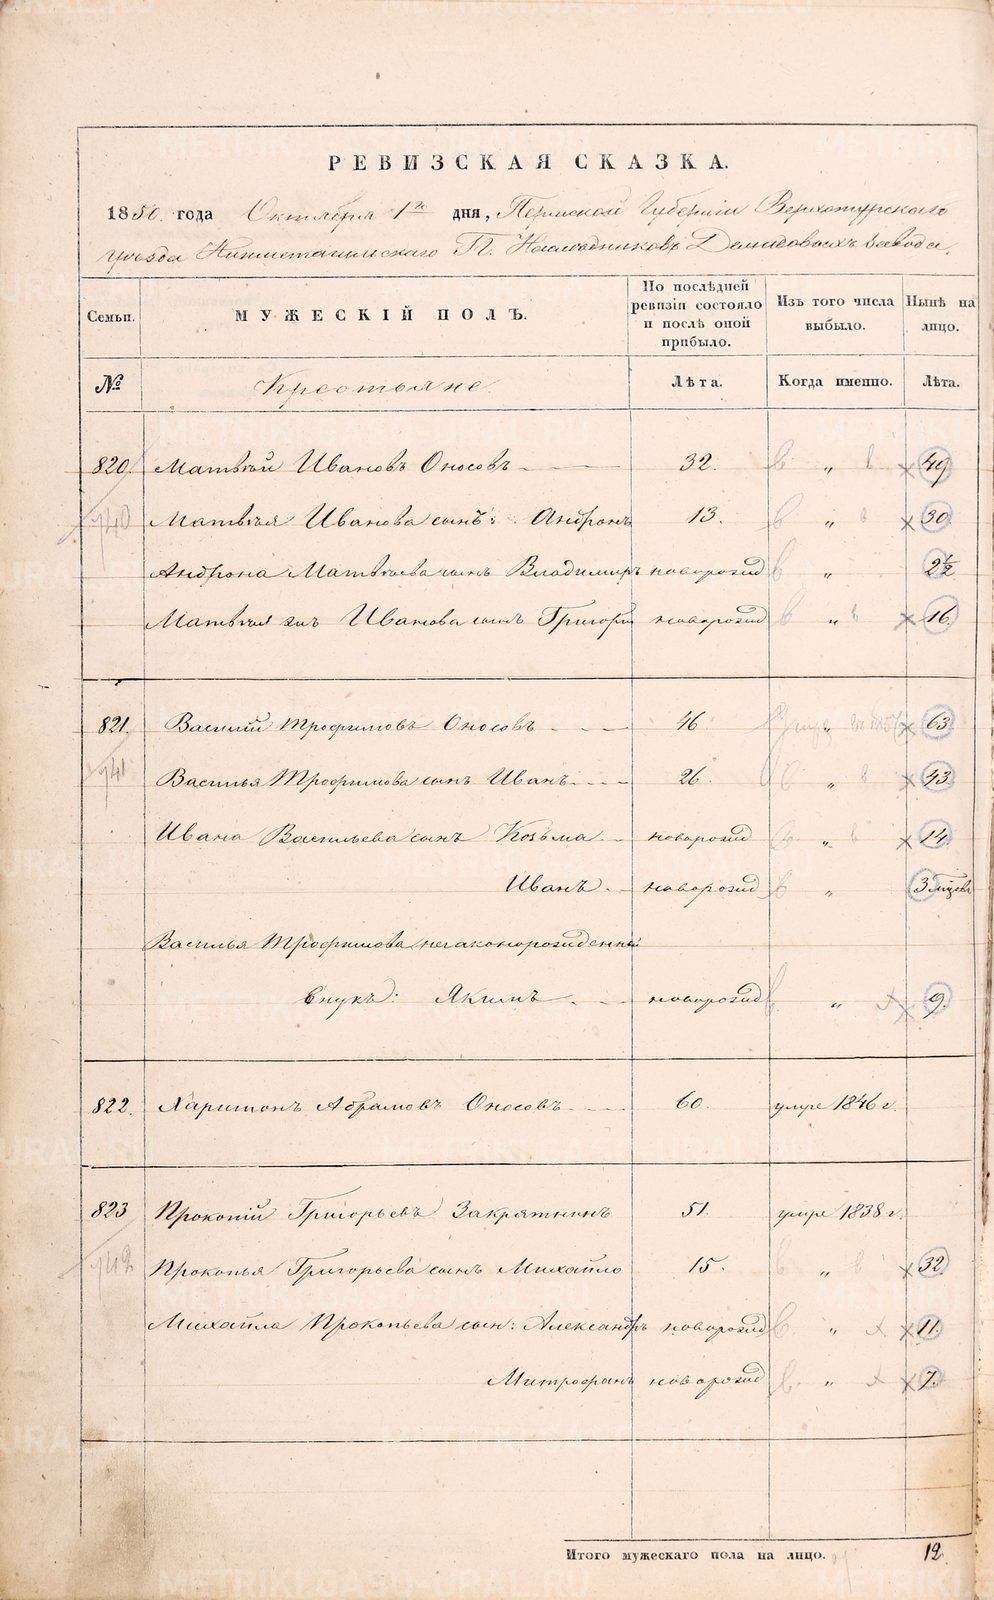 РЕВИЗСКАЯ СКАЗКА.
1850 года Октября 1го дня, Пермской Губерніи Верхотурскаго
уѣзда Нижнетагильскаго Г.г. Наслѣдниковъ Демидовыхъ завода.
Семьи. МУЖЕСКІЙ ПОЛЪ. По послѣдней ревизіи состояло и послѣ оной прибыло. Изъ того числа выбыло. Нынѣ на лицо.
№ Крестьяне Лѣта. Когда именно. Лѣта.
820. Матвѣй Ивановъ Оносовъ 32. „ 49
740 Матвѣя Иванова сынъ: Андронъ 13. „ 30
Андрона Матвѣева сынъ Владимиръ новорожд „ 2½
Матвѣя же Иванова сынъ Григорій новорожд „ 16.
821. Василій Трофимовъ Оносовъ 46 „ 63
741 Василья Трофимова сынъ Иванъ 26. „ 43
Ивана Васильева сынъ Козьма новорожд „ 14
Иванъ новорожд „ 3 мѣсев
Василья Трофимова незаконорожденный
внукъ: Якимъ новорожд „ 9.
822. Харитонъ Абрамовъ Оносовъ 60. умре 1846 г.
823 Прокопій Григорьевъ Закрятинъ 51. умре 1838 г.
742 Прокопья Григорьева сынъ Михайло 15. „ 32
Михайла Прокопьева сын: Александръ новорожд „ 11.
Митрофанъ новорожд „ 7.
Итого мужескаго пола на лицо. 12.
METRIKI.DASH-URAL.RU